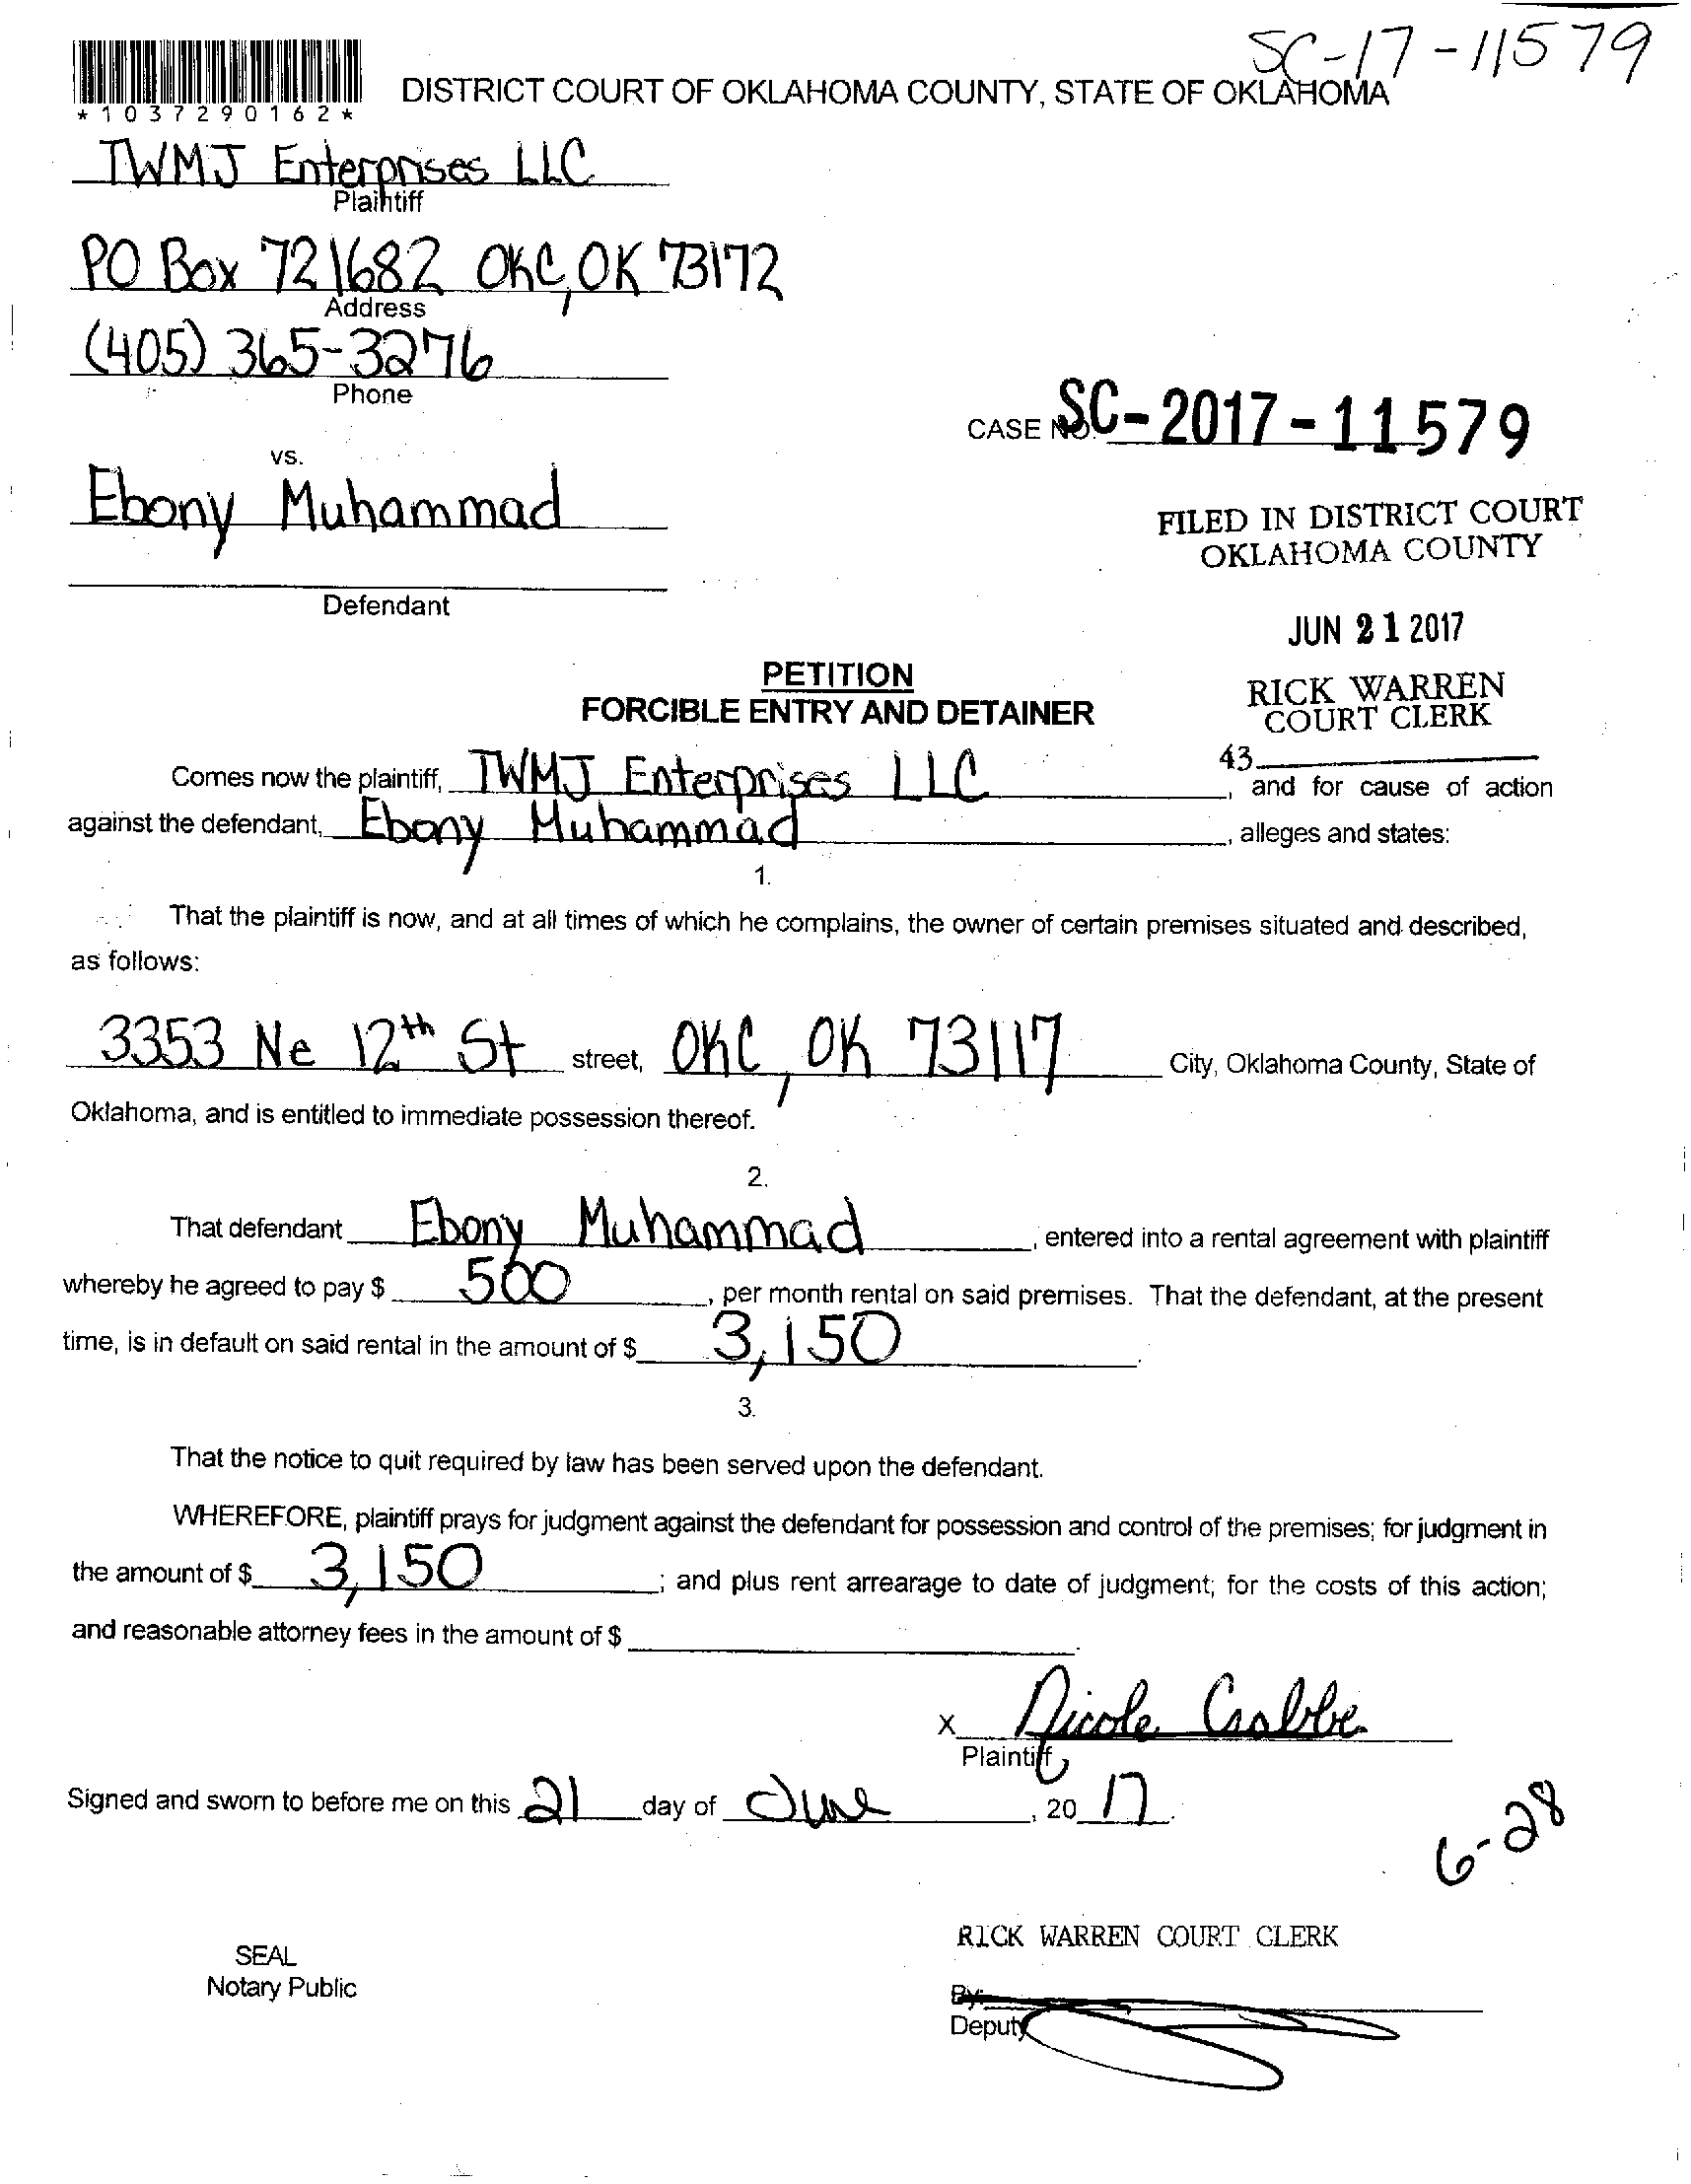 SC-17-11579
DISTRICT COURT OF OKLAHOMA COUNTY, STATE OF OKLAHOMA
*1037290162*
TWMJ Enterprises LLC
Plaintiff
PO Box 721682 OKC, OK 73172
Address
(405) 365-3276
Phone
CASE NO. SC-2017-11579
vs.
Ebony Muhammad
FILED IN DISTRICT COURT
OKLAHOMA COUNTY
Defendant
JUN 21 2017
PETITION
FORCIBLE ENTRY AND DETAINER
RICK WARREN
COURT CLERK
43
Comes now the plaintiff, TWMJ Enterprises LLC, and for cause of action
against the defendant, Ebony Muhammad, alleges and states:
1.
That the plaintiff is now, and at all times of which he complains, the owner of certain premises situated and described,
as follows:
3353 Ne 12th St street, OKC, OK 73117 City, Oklahoma County, State of
Oklahoma, and is entitled to immediate possession thereof.
2.
That defendant Ebony Muhammad, entered into a rental agreement with plaintiff
whereby he agreed to pay $ 500, per month rental on said premises. That the defendant, at the present
time, is in default on said rental in the amount of $ 3,150.
3.
That the notice to quit required by law has been served upon the defendant.
WHEREFORE, plaintiff prays for judgment against the defendant for possession and control of the premises; for judgment in
the amount of $ 3,150; and plus rent arrearage to date of judgment; for the costs of this action;
and reasonable attorney fees in the amount of $ .
x Nicole Crabbe
Plaintiff
Signed and sworn to before me on this 21 day of June, 20 17.
6-28
RICK WARREN COURT CLERK
SEAL
Notary Public
By:
Deputy